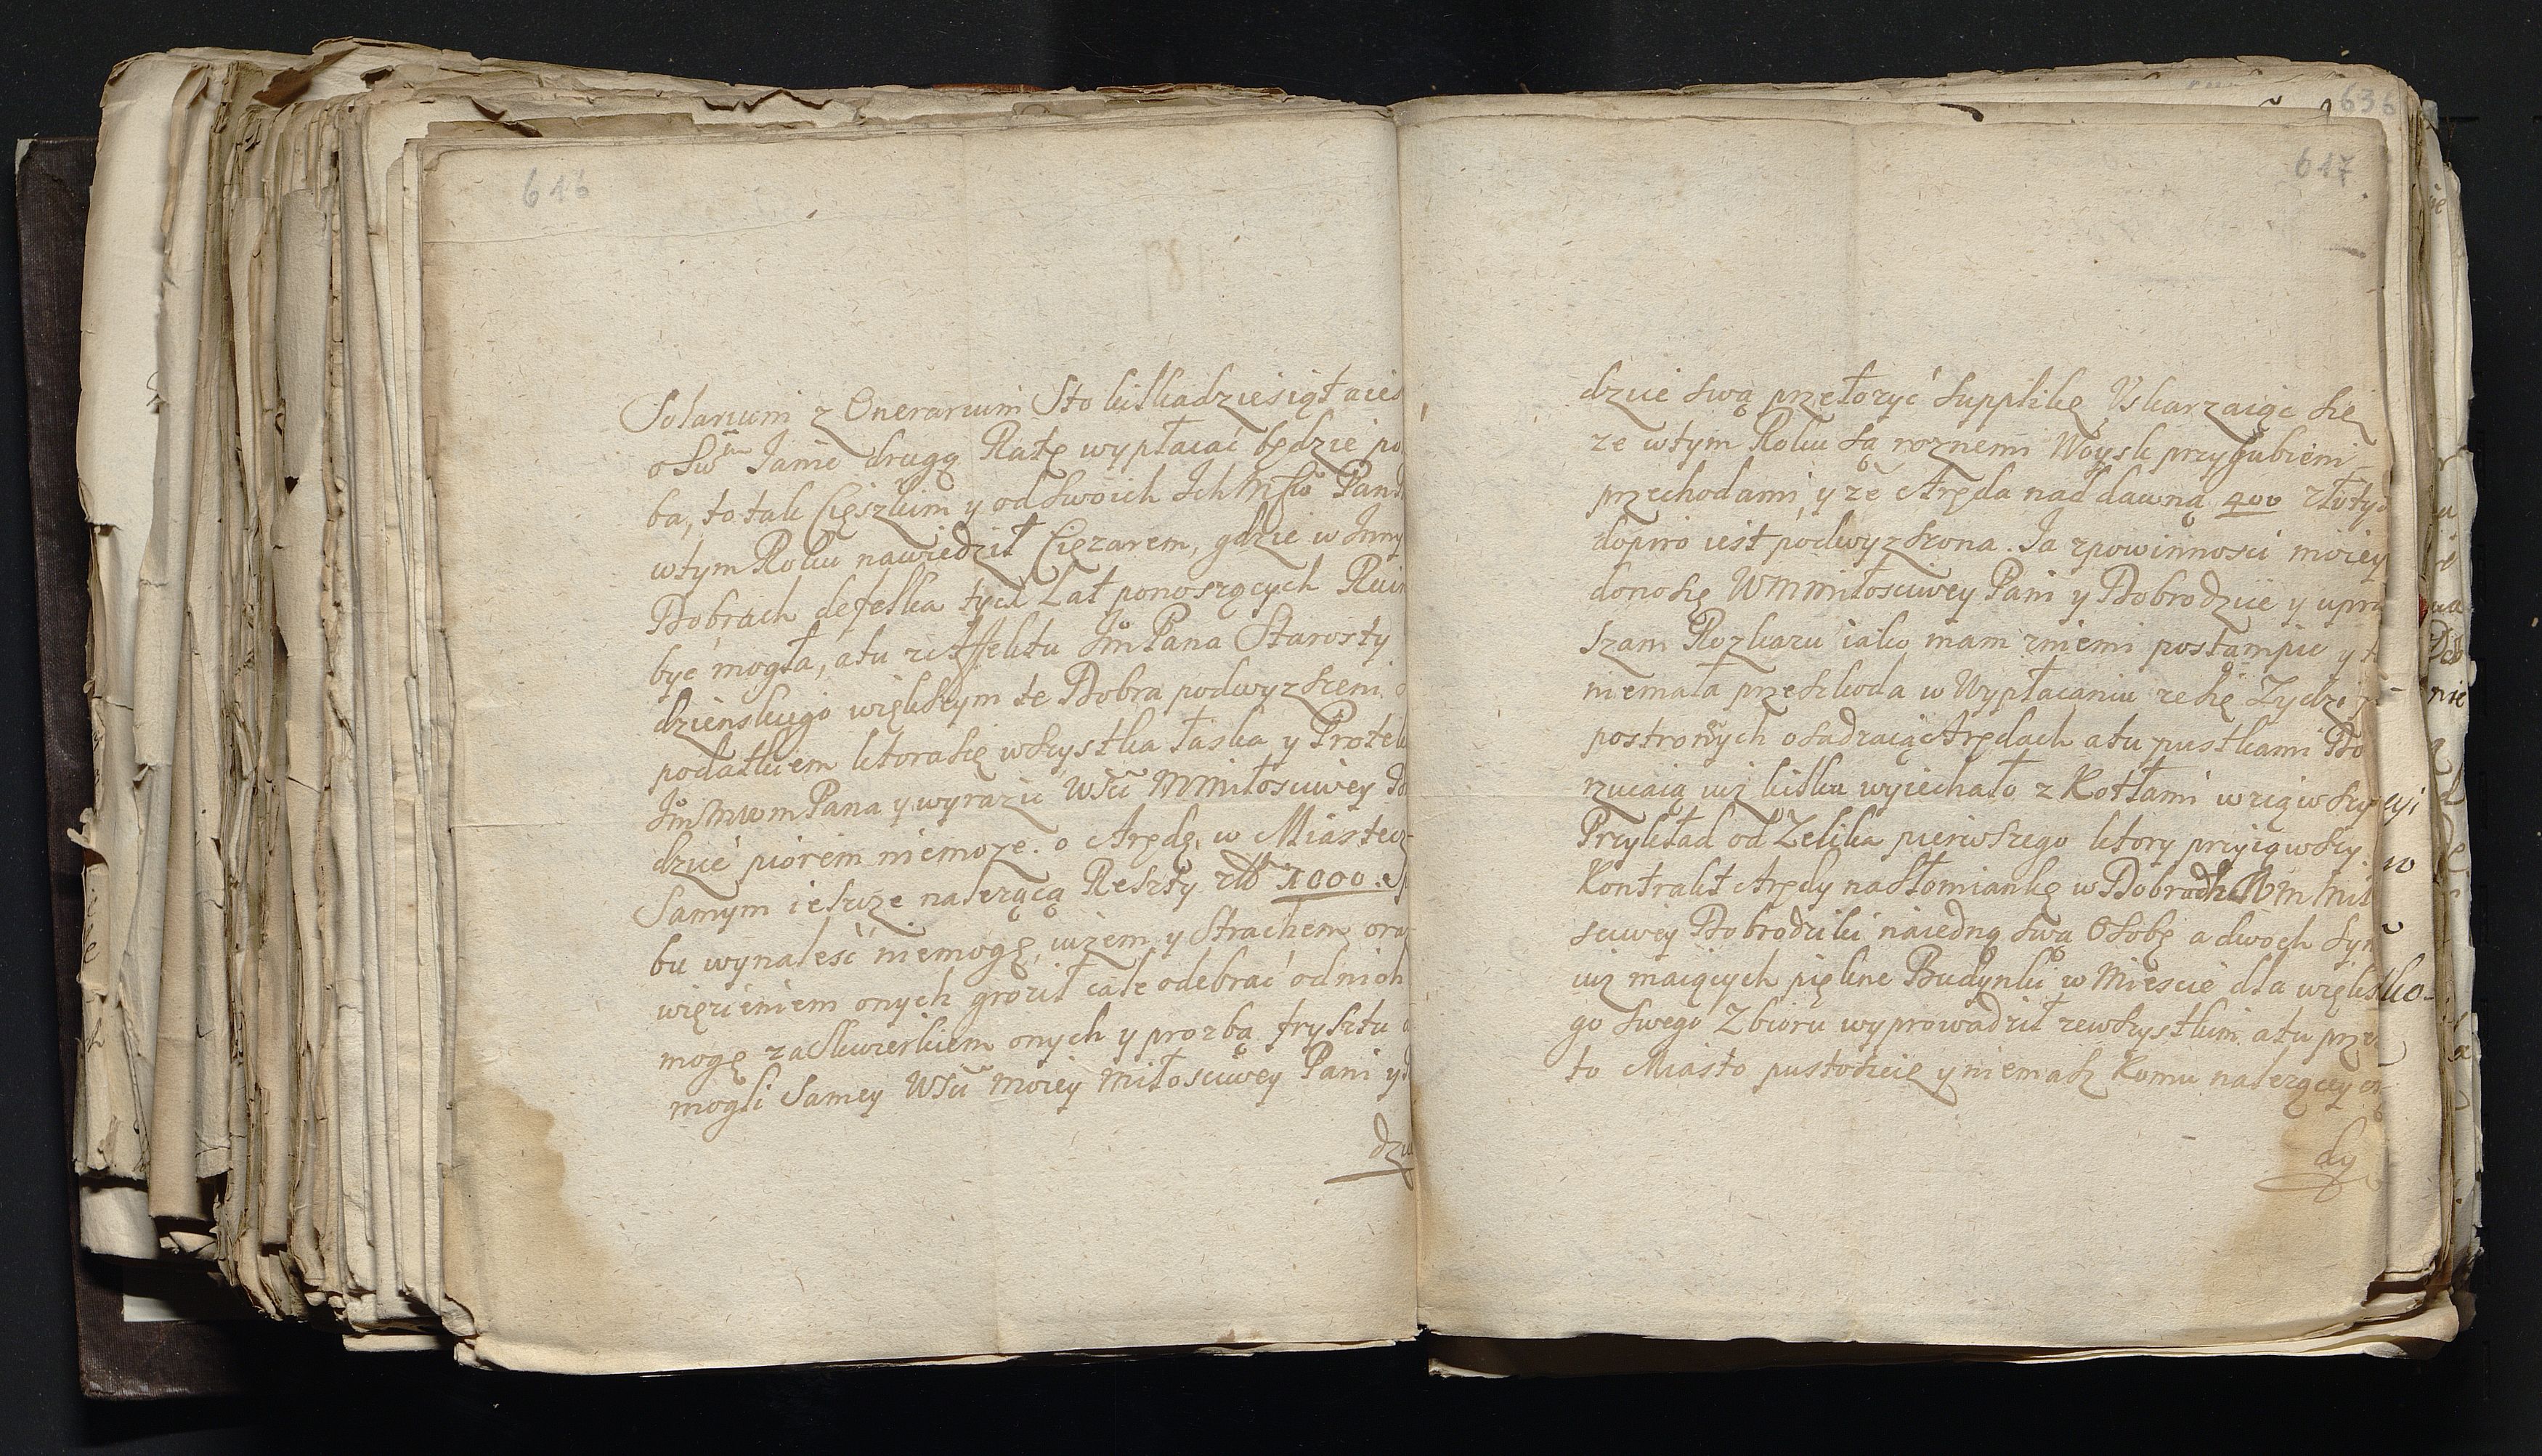 646
Solarium z Onerarium Sto kilkadziesiąt
o Sw Janie drugą Ratę wypłacać będzie po
ba, to tak Cięszkim y od swoich Ich Mściw Pan
wtym Roku nawiedził Ciężarem, gdzie w Inny
Dobrach defelka tych Lat ponoszących Ruin
być mogła, atu z Affektu Jm Pana Starosty
dzienskiego większym te Dobra podwyzszeni
podatkiem ktora się wszystka łaska y Protek
Jm Mwm Pana y wyrazic WSci MMiłosciwey Do
dzic piorem niemoze. o Arędę w Miastecz
Samym ieszcze nalezącą Reszty zło 1000. Sp
bu wynalesc niemogę, iuzem y Strachem oraz
więzieniem onych groził cale odebrać od nich
mogę za Skwierkiem onych y prozbą frysztu
mogli Samey WSci Moiey Miłosciwey Pani y
dzi
636
617
dzice swą przełozyć Supplikę Uskarzaiąc się
ze wtym Roku są roznemi Woysk przygubieni
przechodami, y ze Aręda nad dawną 400 złoty
dopiro iest podwyzszona. Ja zpowinnosci moiey
donoszę WMMiłosciwey Pani y Dobrodzice y upra
szam Rozkazu iako mam zniemi postąmpic y
niemała przeszkoda w Wypłacaniu ze się Zydzi
postronnych osadzaią Arędach atu pustkami Do
rzucaią iuz kilku wyiechało z Kotłami wziąwszy
Przykład od Zelika pierwszego ktory przyiąwszy
Kontrakt Arędy na Słomiankę w Dobrach WmMił
sciwey Dobrodziki naiedną swą Osobę a dwoch Syn
iuz maiących piękne Budynki w Miescie dla więks
go swego Zbioru wyprowadził zewszystkim. atu prze
to Miasto pustoszeie y niemasz Komu nalezącey
dy